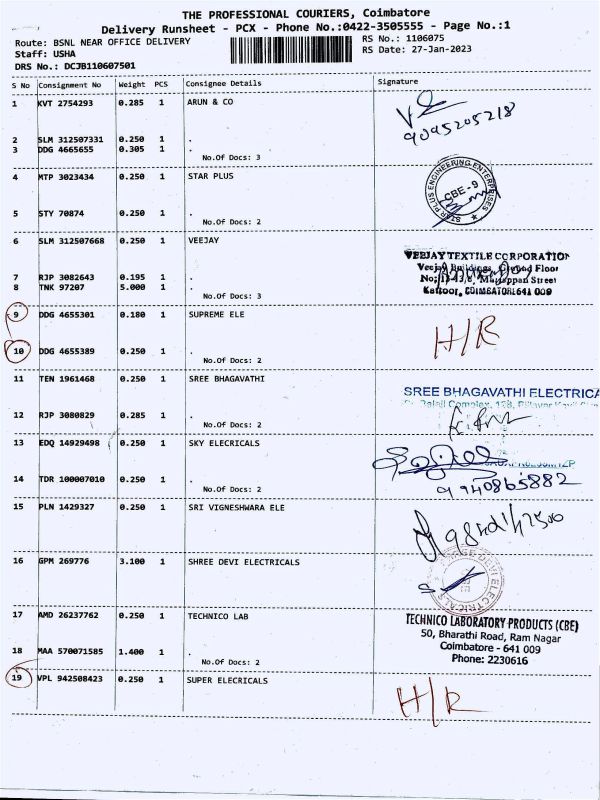 THE PROFESSIONAL COURIERS, Coimbatore
Delivery Runsheet - PCX - Phone No.:0422-3505555 - Page No.:1
Route: BSNL NEAR OFFICE DELIVERY
RS No.: 1106075
Staff: USHA
RS Date: 27-Jan-2023
DRS No.: DCJB110607501
S No Consignment No Weight PCS Consignee Details Signature
1 KVT 2754293 0.285 1 ARUN & CO
9095205218
2 SLM 312507331 0.250 1 .
3 DDG 4665655 0.305 1 .
No.Of Docs: 3
4 MTP 3023434 0.250 1 STAR PLUS
STAR PLUS ENGINEERING ENTERPRISES
CBE - 9
5 STY 70874 0.250 1 .
No.Of Docs: 2
6 SLM 312507668 0.250 1 VEEJAY
VEEJAY TEXTILE CORPORATION
Veejay Buildings, Ground Floor
7 RJP 3082643 0.195 1 .
Street
8 TNK 97207 5.000 1 .
Kattoor, COIMBATORE 641 009
No.Of Docs: 3
9 DDG 4655301 0.180 1 SUPREME ELE
H/R
10 DDG 4655389 0.250 1 .
No.Of Docs: 2
11 TEN 1961468 0.250 1 SREE BHAGAVATHI
SREE BHAGAVATHI ELECTRICA
Complex,
12 RJP 3080829 0.285 1 .
No.Of Docs: 2
13 EDQ 14929498 0.250 1 SKY ELECRICALS
14 TDR 100007010 0.250 1 .
9940865882
No.Of Docs: 2
15 PLN 1429327 0.250 1 SRI VIGNESHWARA ELE
16 GPM 269776 3.100 1 SHREE DEVI ELECTRICALS
DEVI ELECTRICALS
17 AMD 26237762 0.250 1 TECHNICO LAB
TECHNICO LABORATORY PRODUCTS (CBE)
50, Bharathi Road, Ram Nagar
Coimbatore - 641 009
Phone: 2230616
18 MAA 570071585 1.400 1 .
No.Of Docs: 2
19 VPL 942508423 0.250 1 SUPER ELECRICALS
H/R